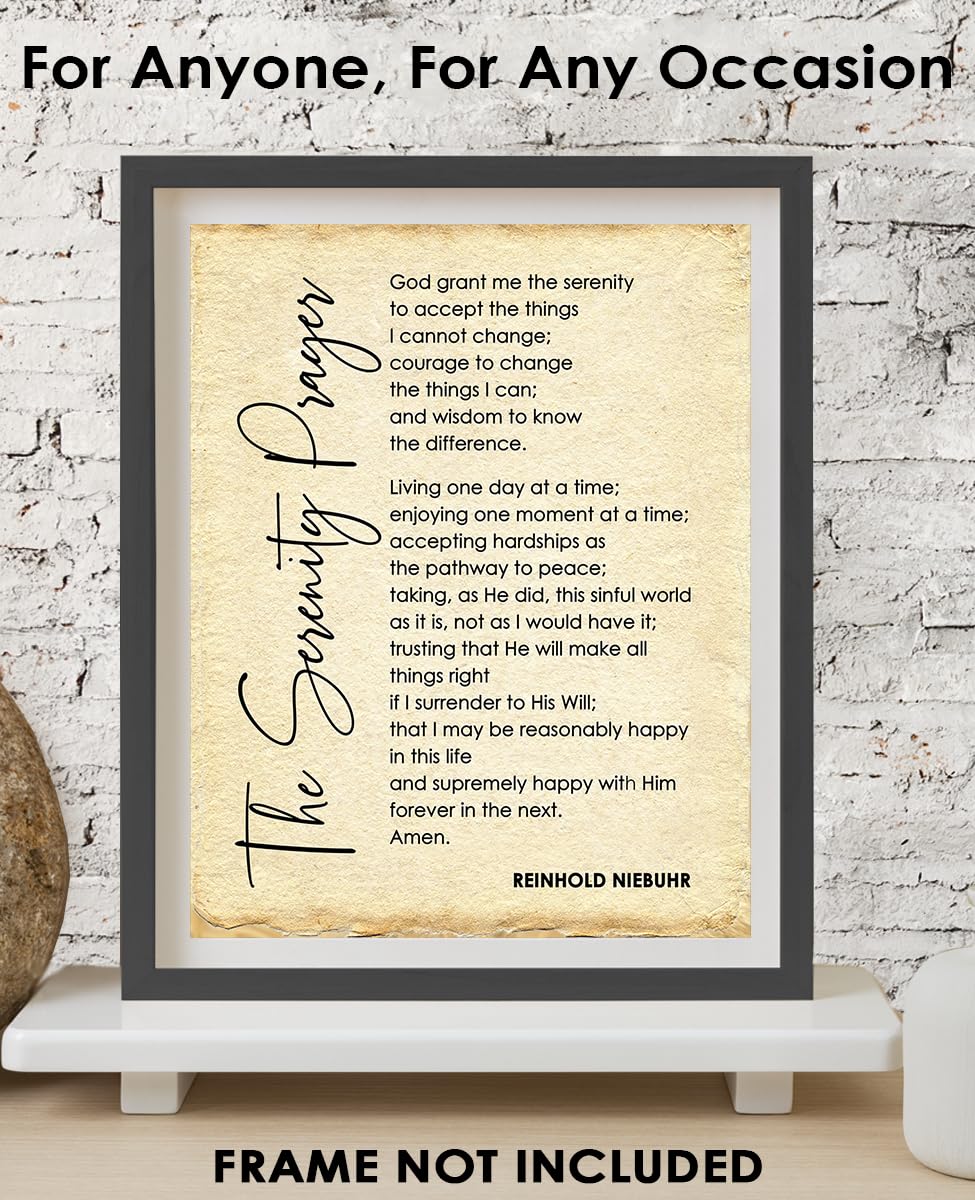 For Anyone, For Any Occasion
The Serenity Prayer
God grant me the serenity
to accept the things
I cannot change;
courage to change
the things I can;
and wisdom to know
the difference.
Living one day at a time;
enjoying one moment at a time;
accepting hardships as
the pathway to peace;
taking, as He did, this sinful world
as it is, not as I would have it;
trusting that He will make all
things right
if I surrender to His Will;
that I may be reasonably happy
in this life
and supremely happy with Him
forever in the next.
Amen.
REINHOLD NIEBUHR
FRAME NOT INCLUDED